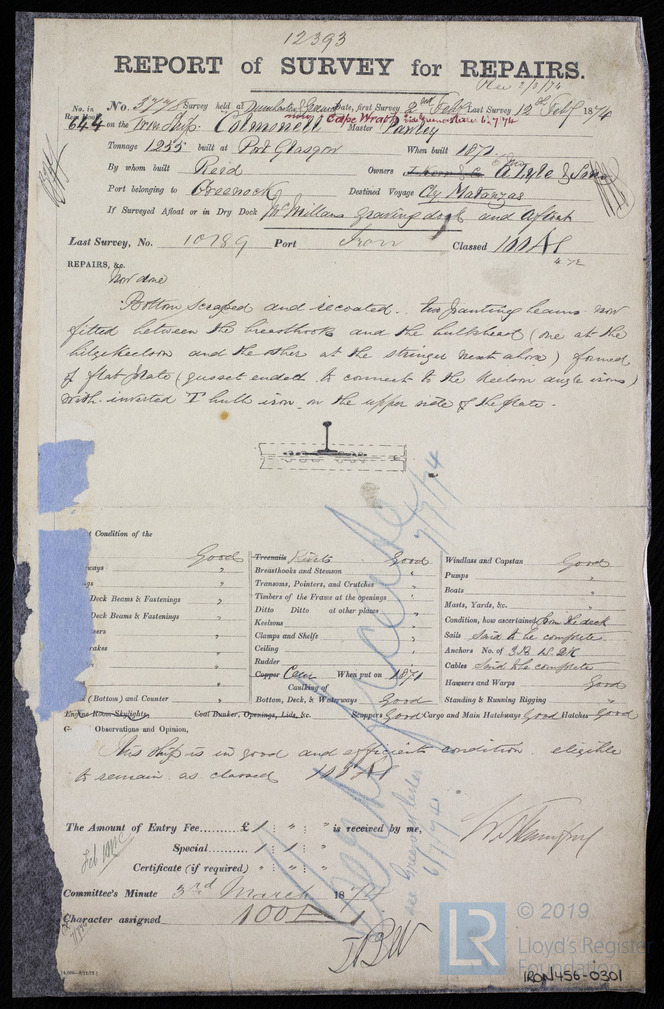 12393
REPORT of SURVEY for REPAIRS.
No. in Reg. Book No. 5778 Survey held at Dumbarton & Greenock Date, first Survey 2nd Feby Last Survey 12th Feby 1874
644 on the Iron Ship Colmonell now Cape Wrath Master Pawley
Tonnage 1255 built at Port Glasgow When built 1871
By whom built Reid Owners A. Lyle & Sons
Port belonging to Greenock Destined Voyage Cly Matanzas
If Surveyed Afloat or in Dry Dock McMillans graving dock and afloat
Last Survey, No. 10789 Port Iron Classed 100A1
4.72
REPAIRS, &c.
Now done
Bottom scraped and recoated. two panting beams now
fitted between the breasthooks and the bulkhead (one at the
bilgekeelson and the other at the stringer next above) formed
of flat plate (gusset ended to connect to the keelson angle irons)
with inverted T bulb iron on the upper side of the plate.
t Condition of the
Good
Treenails Rivets Good
Windlass and Capstan Good
ways "
Breasthooks and Stemson "
Pumps "
gs "
Transoms, Pointers, and Crutches "
Boats "
Deck Beams & Fastenings "
Timbers of the Frame at the openings "
Masts, Yards, &c. "
Deck Beams & Fastenings "
Ditto Ditto at other places "
Condition, how ascertained from the deck
sers "
Keelsons "
Sails Said to be complete
rakes "
Clamps and Shelfs "
Anchors No. of 3B. 1S. 2K
Ceiling "
Cables Said to be complete
Rudder "
Hawsers and Warps Good
Copper Cem When put on 1871
Standing & Running Rigging "
(Bottom) and Counter "
Caulking of Bottom, Deck, & Waterways Good
Engine Room Skylights, Coal Bunker, Openings, Lids, &c. Scuppers Good Cargo and Main Hatchways Good Hatches Good
Observations and Opinion,
This ship is in good and efficient condition eligible
to remain as classed 100A1
The Amount of Entry Fee......... £ 1 : " : " is received by me,
Special......... 1 : 1 : "
Certificate (if required) " : " : "
Committee's Minute 3rd March 1874
Character assigned 100A1
© 2019
LR
Lloyd's Register
Foundation
IRON456-0301